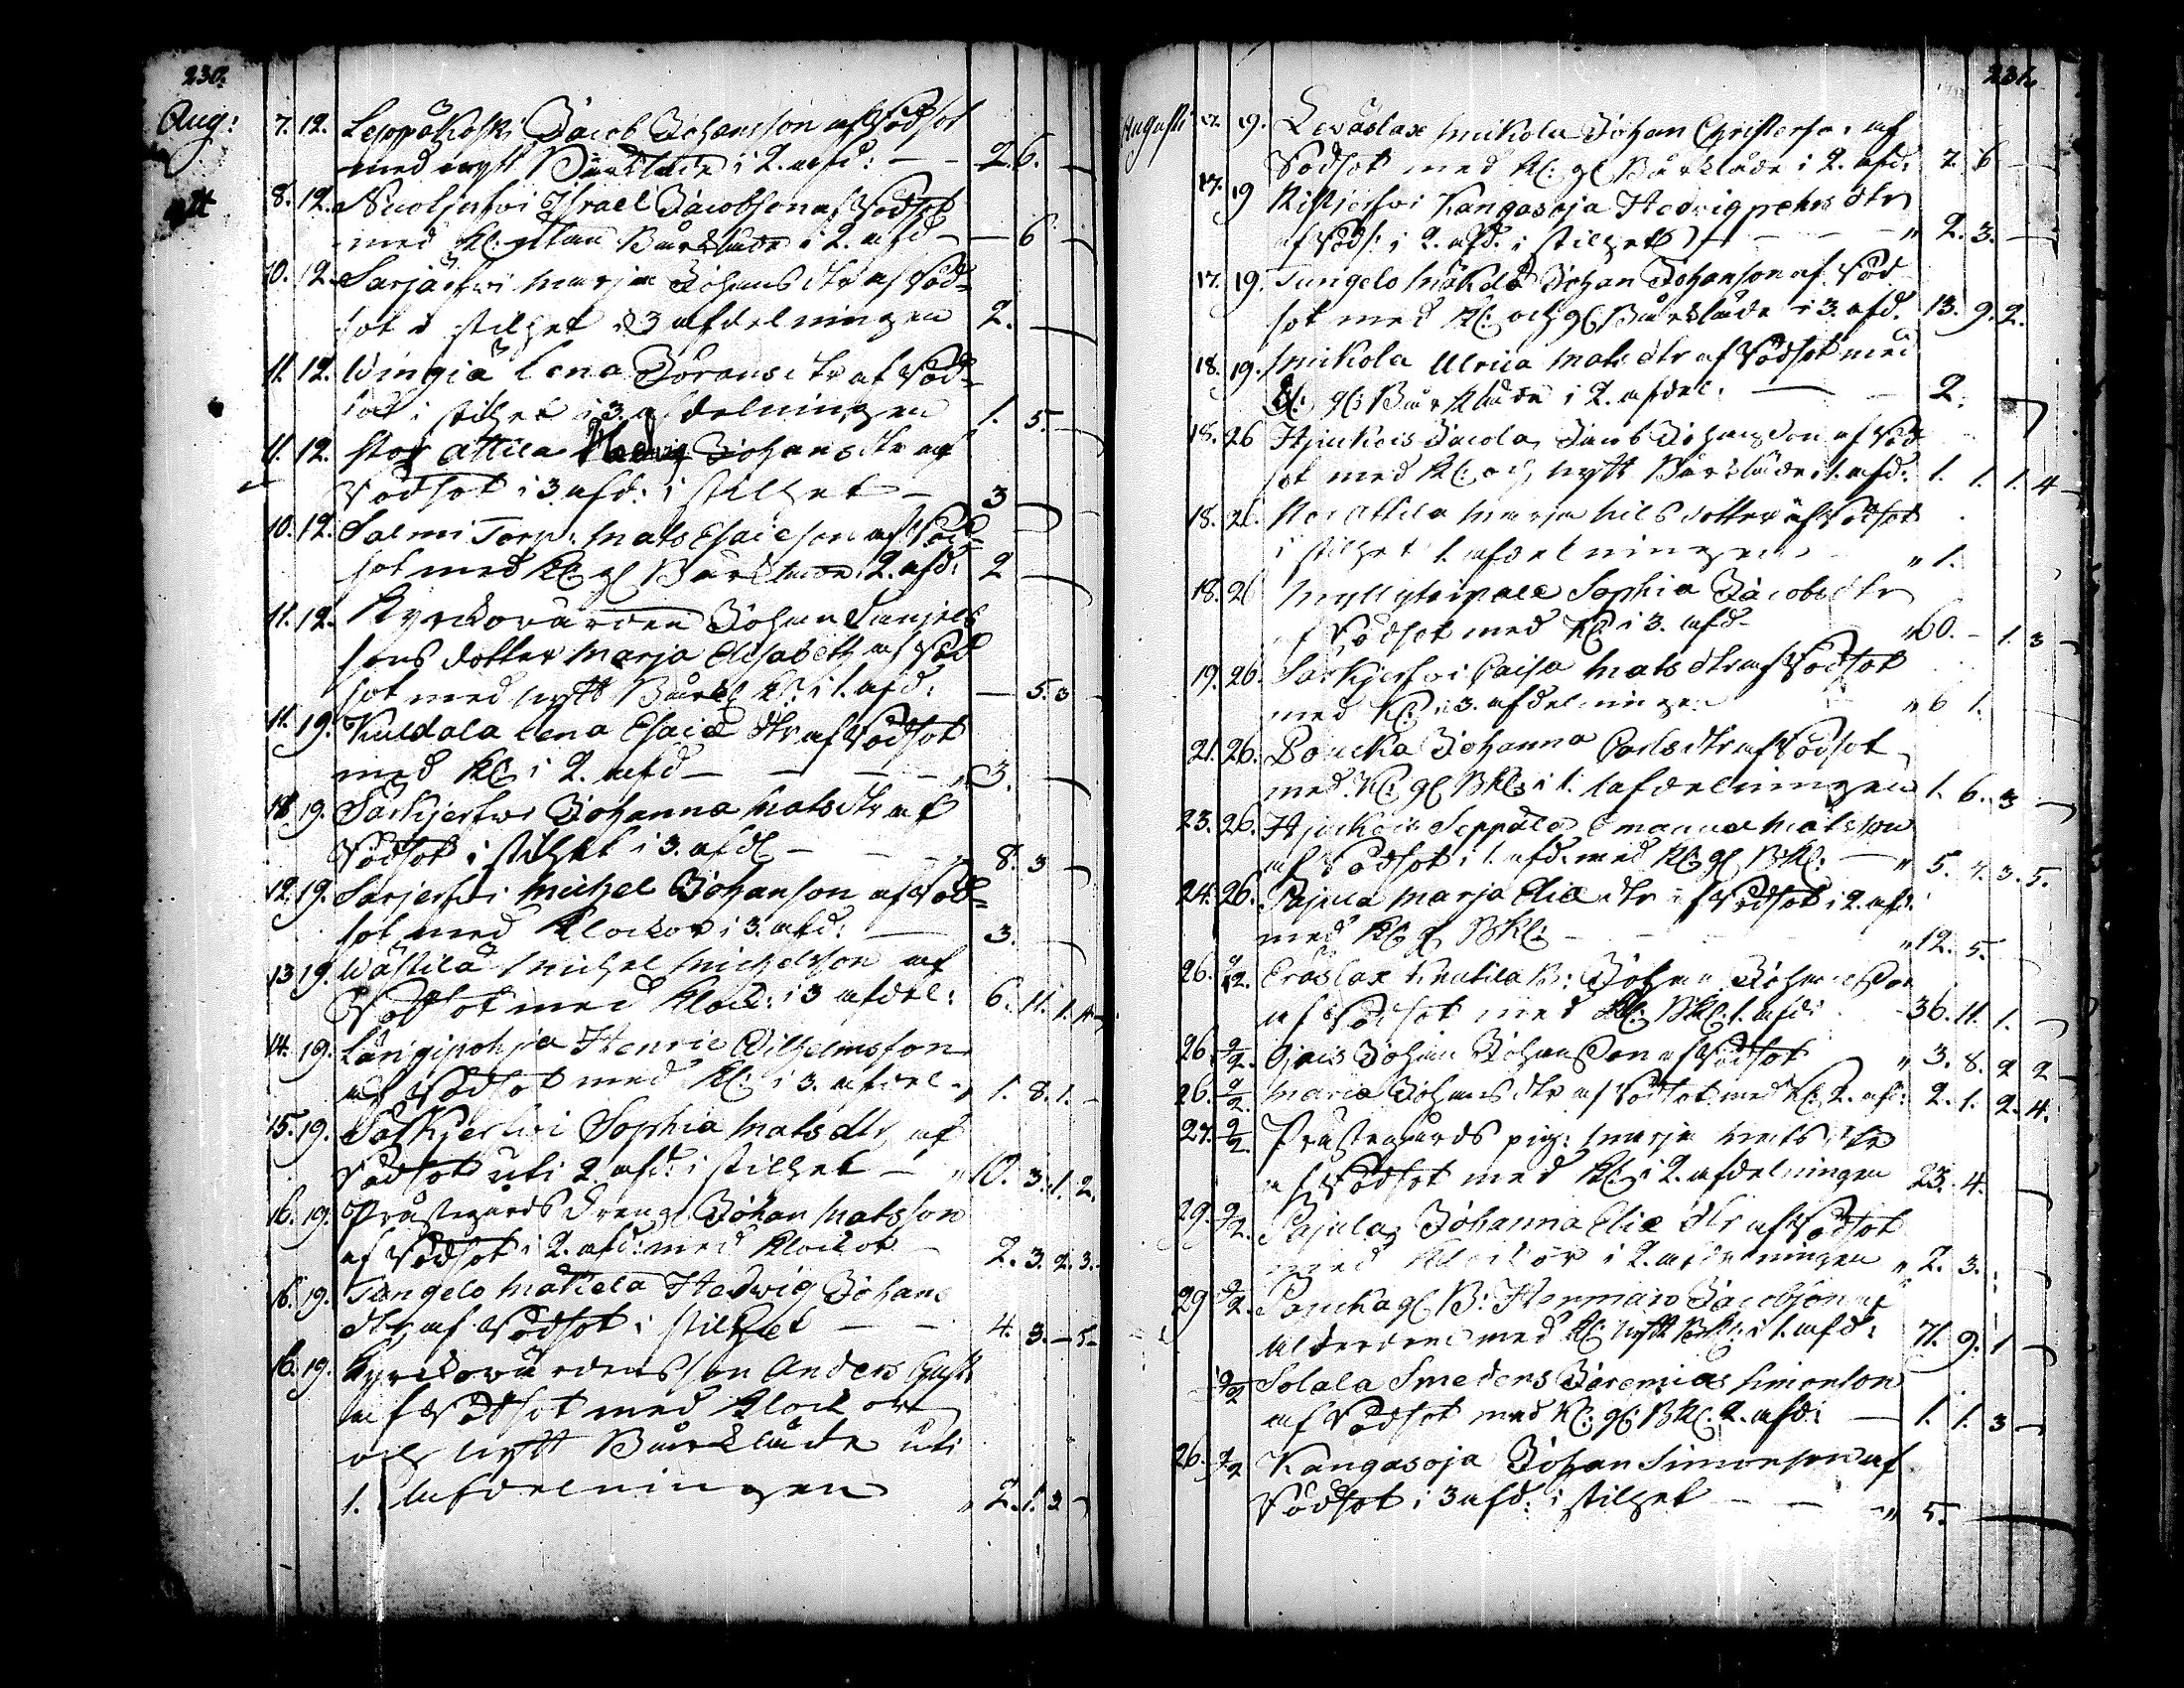 230.
Aug:
7. 12. Leppäkoski Jacob Johansson af Rödsot
med nytt Bårkläde i 2. afd: — 2. 6. —
8. 12. Israel Jacobsson af Rödsot
med Kl: utan Bårkläde i 2. afd — — 6 —
10. 12. Sarjärfwi Marja Johans dtr af Röd=
sot i stilhet i 3 afdelningen 2. —
11. 12. Wingiä Lena Görans dtr af Röd=
sot i stilhet i 3. afdelningen 1. 5. —
11. 12. Stor Attila Hedvig Johans dtr af
Rödsot i 3. afd: i stilhet — 3 —
10. 12. Salmi Torp: Mats Esaieson af Röd=
sot med Kl: gl Bårkläde 2. afd: 2 —
11. 12. Kyrckovärden Johan Danjels
sons dotter Marja Elisabeth af Röd
sot med nytt Bårkl Kl: i 1. afd: — 5. 3 —
11. 19. Kuldala Lena Esaiæ dtr af Rödsot
med Kl: i 2. afd — — — „ 3. —
18 19. Särkjerfwi Johanna Mats dtr af
Rödsot i stilhet i 3. afd — 8. 3 —
12. 19. Sarjerfwi Michel Johanson af Röd=
sot med Klockor i 3. afd: — 3. —
13 19. Wästilä Michel Michelsson af
Rödsot med Klock: i 3 afdel: 6. 11. 1. 4
14. 19. Längipohja Henric Wilhelmsson
af Rödsot med Kl: i 3. afdel — „ 1. 8. 1. —
15. 19. Särkjerfwi Sophia Mats dtr af
Rödsot uti 2. afd: i stilhet — „ 10. 3. 1. 2.
16. 19. Prästegårds Dreng Johan Matsson
af Rödsot i 2. afd: med Klockor — 2. 3. 2. 3.
16. 19. Tungelo Mäkelä Hedwig Johans
dtr af Rödsot i stilhet — — 4. 3. — 5.
16. 19. Kyrckovärdens son Anders Gust:
af Rödsot med Klockor
och nytt Bårkläde uti
1. Afdelningen „ 2. 1. 3 —
231.
Augusti 17. 19. Leväslax Mikola Johan Christersson af
Rödsot med Kl: gl Bårkläde i 2. afd: 7. 6 —
17. 19 Kangasoja Hedvig Pehrs dtr
af Röds: i 2. afd: i stilhet — — — „ 2. 3. —
17. 19. Tungelo Mäkelä Johan Johanson af Röd
sot med Kl: och gl Bårkläde i 3. afd. 13. 9. 2.
18. 19. Mikola Ulrica Mats dtr af Rödsot med
Kl: gl: Bårkläde i 2. afdel: — 2. —
18. 26 Hjukois Jacola Jacob Johansson af Röd
sot med Kl: och nytt Bårkläde i 1. afd: 1. 1. 1. 4
18. 26. Stor Attila Marja Nils dotter af Rödsot
i stilhet 1. afdelningen „ 1.
18. 26 Sophia Jacobs dtr
af Rödsot med Kl: i 3. afd — „ 60. — 1. 3 —
19. 26. Särkjerfwi Caisa Mats dtr af Rödsot
med Kl: i 3. afdelningen „ 6 1.
21. 26. Poucka Johanna Carls dtr af Rödsot
med Kl: gl Bkl: i 1. afdelningen 1. 6. 3 —
23. 26. Hjukois Seppälä Emanuel Matsson
af Rödsot i 1. afd: med Kl: gl Bkl: — „ 5. 7. 3. 5.
24. 26. Pajula Marja Eliæ dtr af Rödsot i 2. afd:
med Kl: gl Bkl: — „ 12. 5. —
26. 9/2. Eräslax B: Johan Johansson
af Rödsot med Kl: Bkl: 1. afd: — 36. 11. 1. —
26. 9/2. Johan Johansson af Rödsot „ 3. 8. 2 2
26. 9/2. Maria Johans dtr af Rödsot med Kl: 2. afd: 2. 1. 2. 4.
27. 9/2 Prästegårds pig: Marja Mats dtr
af Rödsot med Kl: i 2. afdelningen 23. 4. —
29. 9/2. Pajula Johanna Eliæ dtr af Rödsot
med Klockor i 2. afdelningen „ 2. 3. —
29 9/2. Poucka gl B: Herman Jacobson af
Ålderdom med Kl: nytt Bkl: i 1. afd: 71. 9. 1 —
9/2 Solala Smedens Jeremias Simonson
af Rödsot med Kl: gl: Bkl: 2. afd: — 1. 1. 3 —
26. 9/2 Kangasoja Johan Simonson af
Rödsot i 3 afd: i stilhet — — „ 5. —